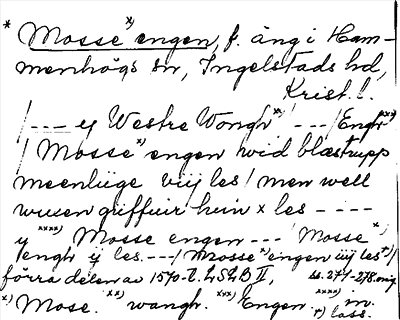 * Mosse x) engen, f. äng i Ham-
menhögs sn, Ingelstads hd,
Krist. l.
/--- ey Westre Wongh xx) --- / Engh xxx)
/ Mosse x) engen wid blæstrupp
meenliige viij les / men well
wuxen giffuir hun x les ----
ij xxxx) Mosse engen --- / Mosse x)
engh ij les. --- / Mosse x) engen iiij les +) /
förra delen av 1570-t. LSLB II, ss. 277-278. orig.
x) Mose. xx) wangh. xxx) Engen. xxxx) iij.
+) lass.